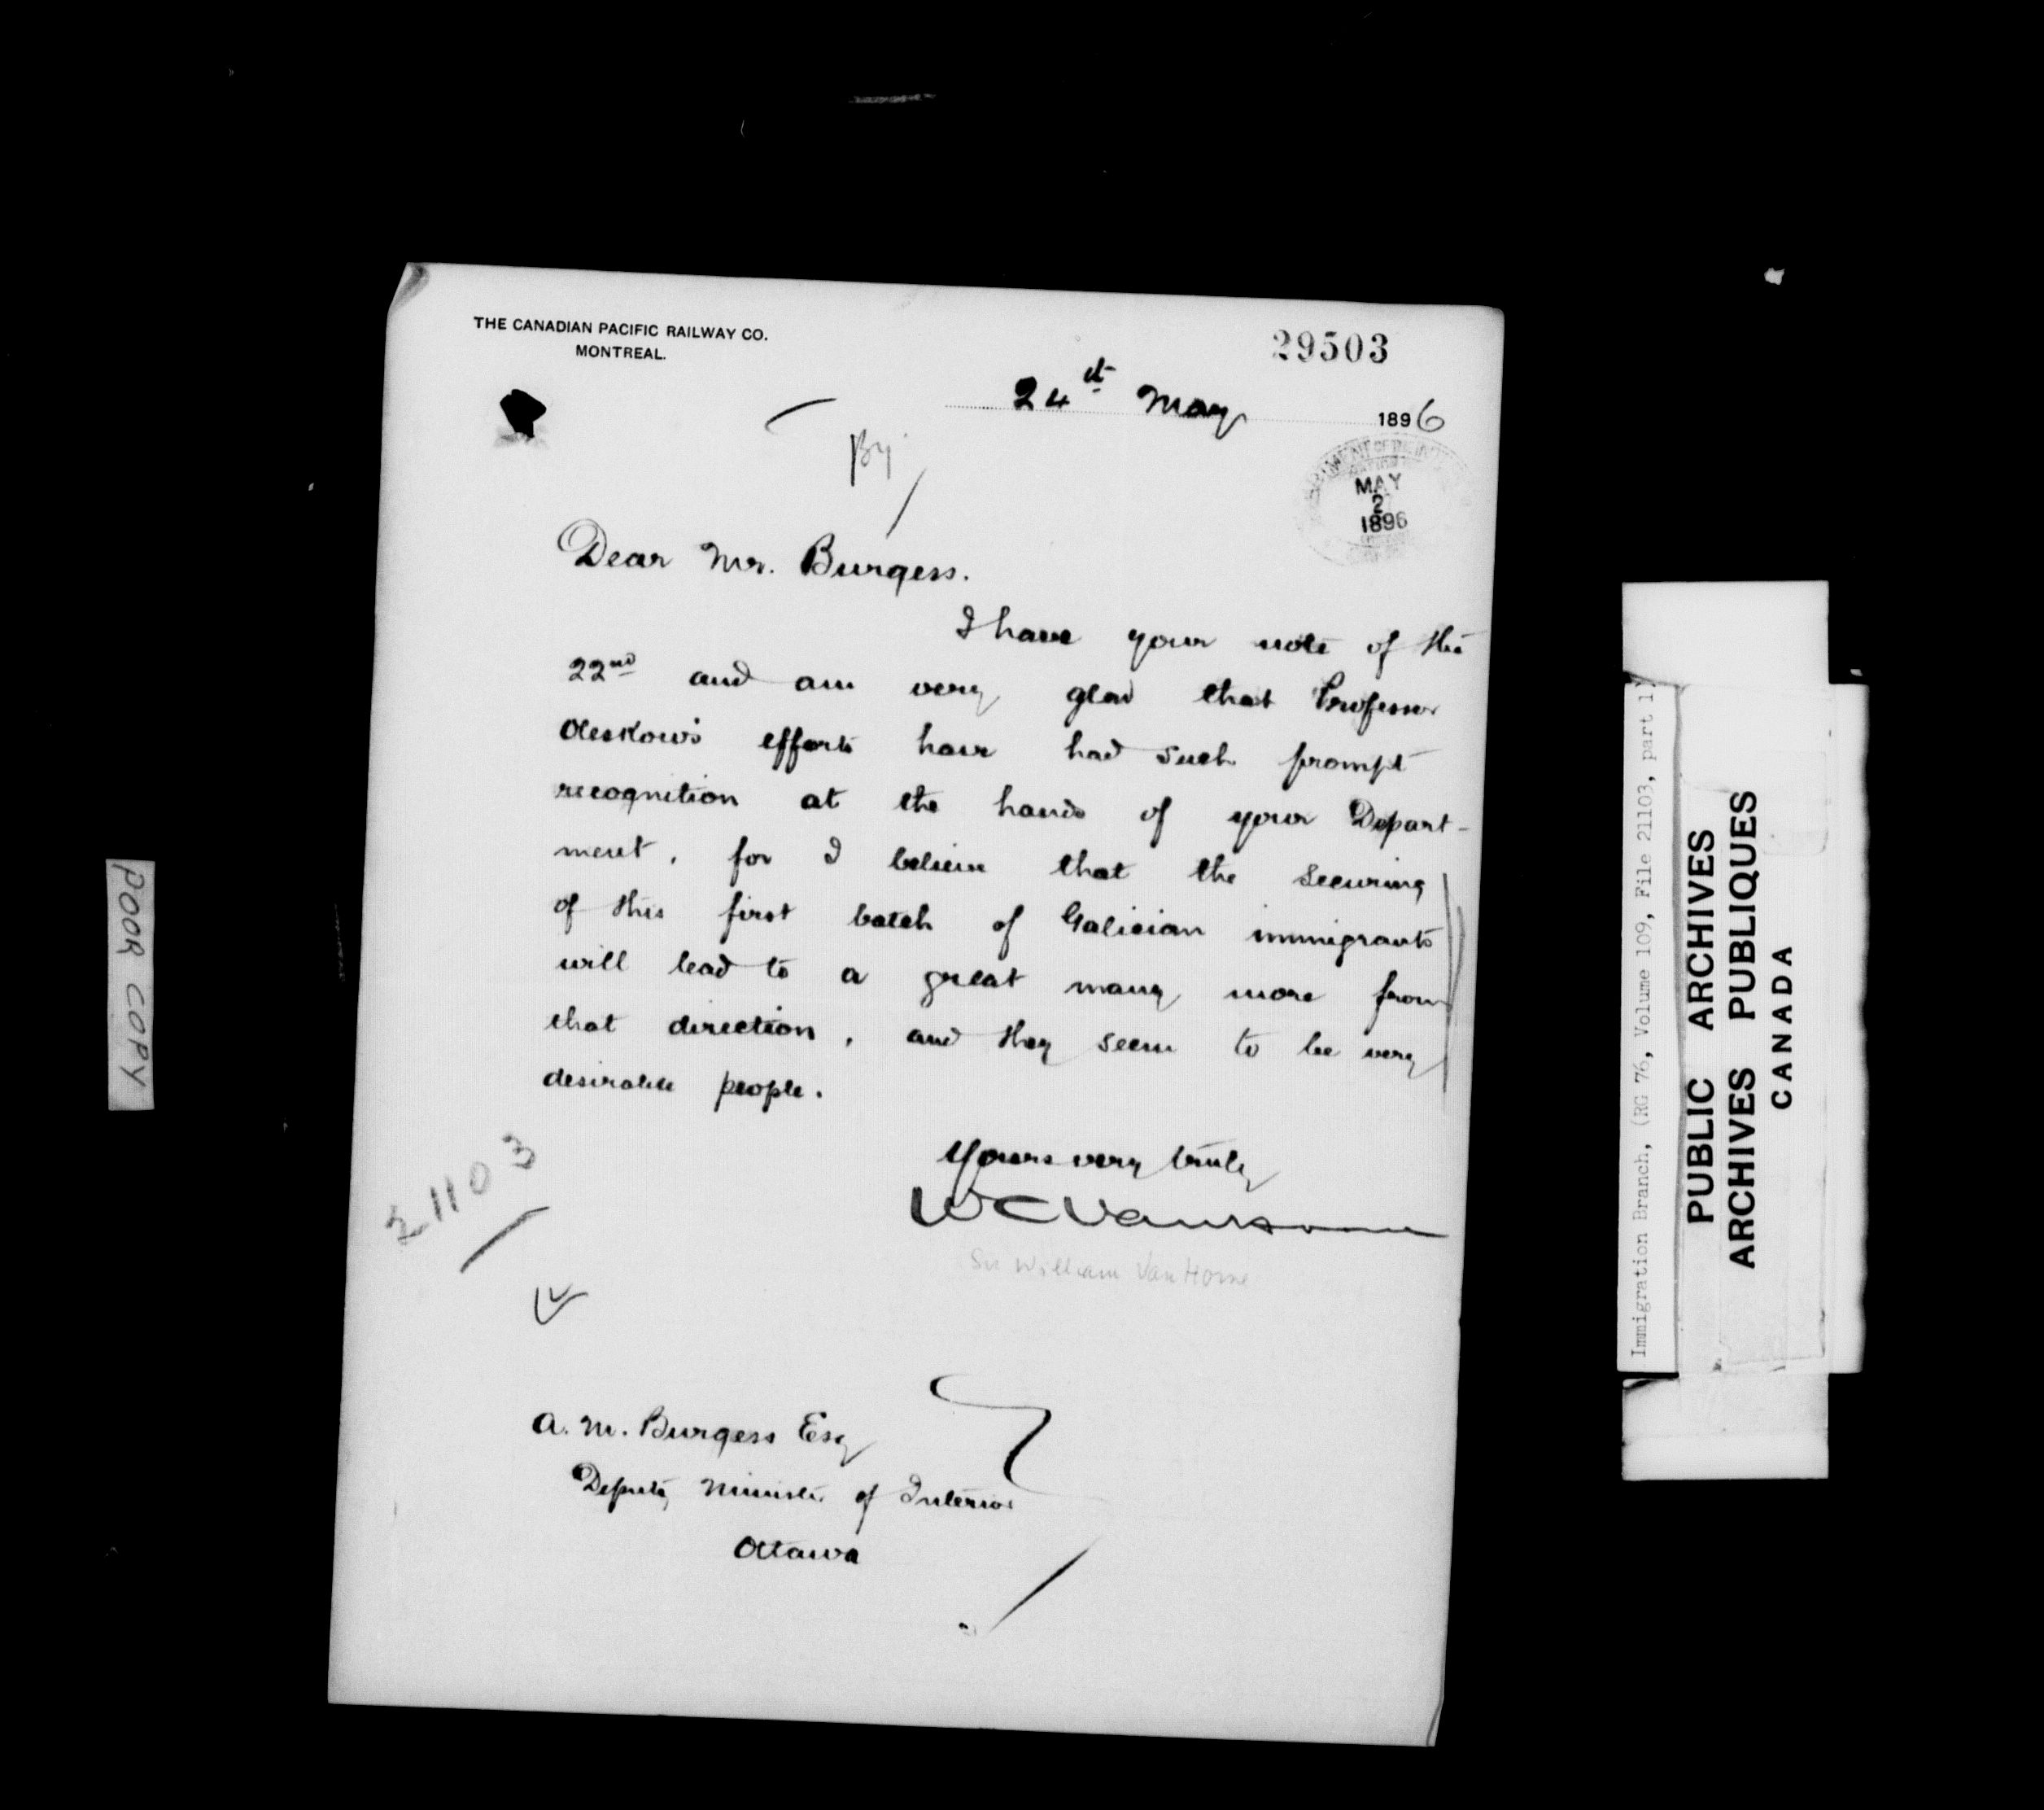 THE CANADIAN PACIFIC RAILWAY CO.
MONTREAL.
29503
24th May 1896
By
MAY
2
1896
Dear Mr. Burgess.
I have your note of the
22nd and am very glad that Professor
Oleskow's efforts have had such prompt
recognition at the hands of your Depart-
ment, for I believe that the securing
of this first batch of Galician immigrants
will lead to a great many more from
that direction, and they seem to be very
desirable people.
Yours very truly
W C Van Horne
Sir William Van Horne
21103
A. M. Burgess Esq
Deputy Minister of Interior
Ottawa
POOR COPY
Immigration Branch, (RG 76, Volume 109, File 21103, part 1)
PUBLIC ARCHIVES
ARCHIVES PUBLIQUES
CANADA